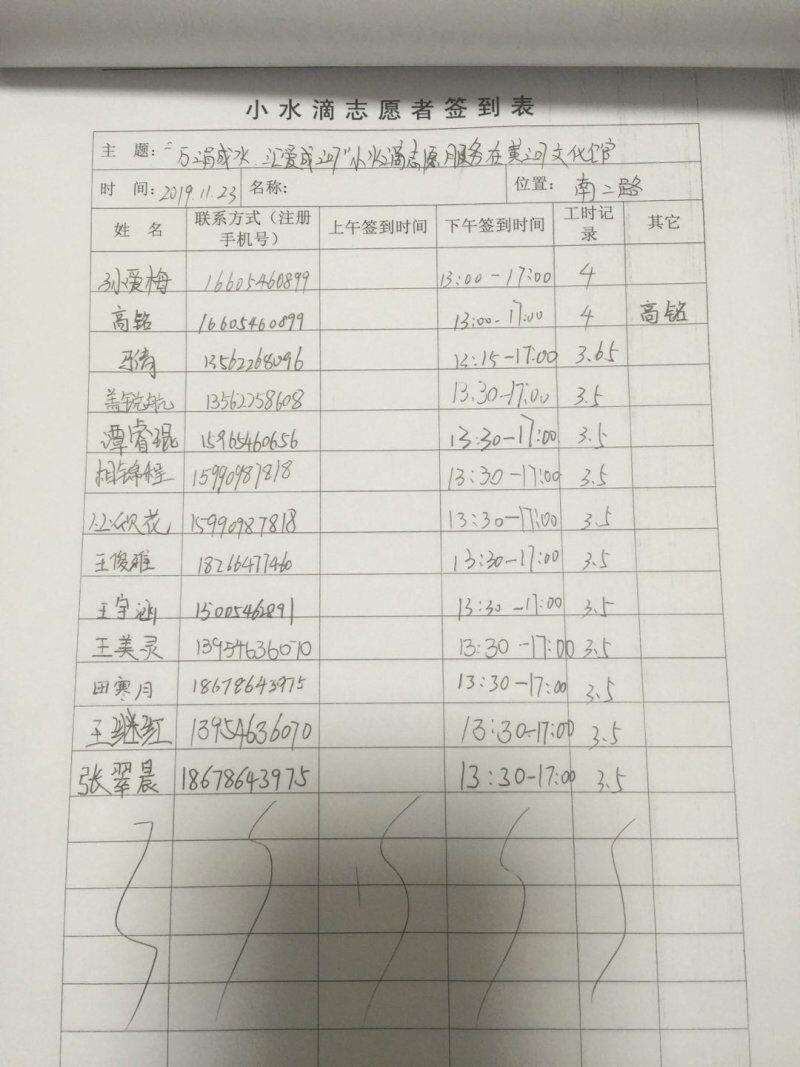 小水滴志愿者签到表
主 题: "万涓成水.汇爱成河"小水滴志愿服务在黄河文化馆
时 间: 2019.11.23 名称: 位置: 南二路
姓 名 联系方式(注册手机号) 上午签到时间 下午签到时间 工时记录 其它
孙爱梅 16605460899 13:00-17:00 4
高铭 16605460899 13:00-17:00 4 高铭
13562268096 13:15-17:00 3.65
盖锐航 13562258608 13:30-17:00 3.5
谭睿琨 15965460656 13:30-17:00 3.5
相锦程 15990987818 13:30-17:00 3.5
15990987818 13:30-17:00 3.5
王俊雅 18266477460 13:30-17:00 3.5
王宇涵 15005462891 13:30-17:00 3.5
王美灵 13954636070 13:30-17:00 3.5
田寒月 18678643975 13:30-17:00 3.5
王继红 13954636070 13:30-17:00 3.5
张翠晨 18678643975 13:30-17:00 3.5